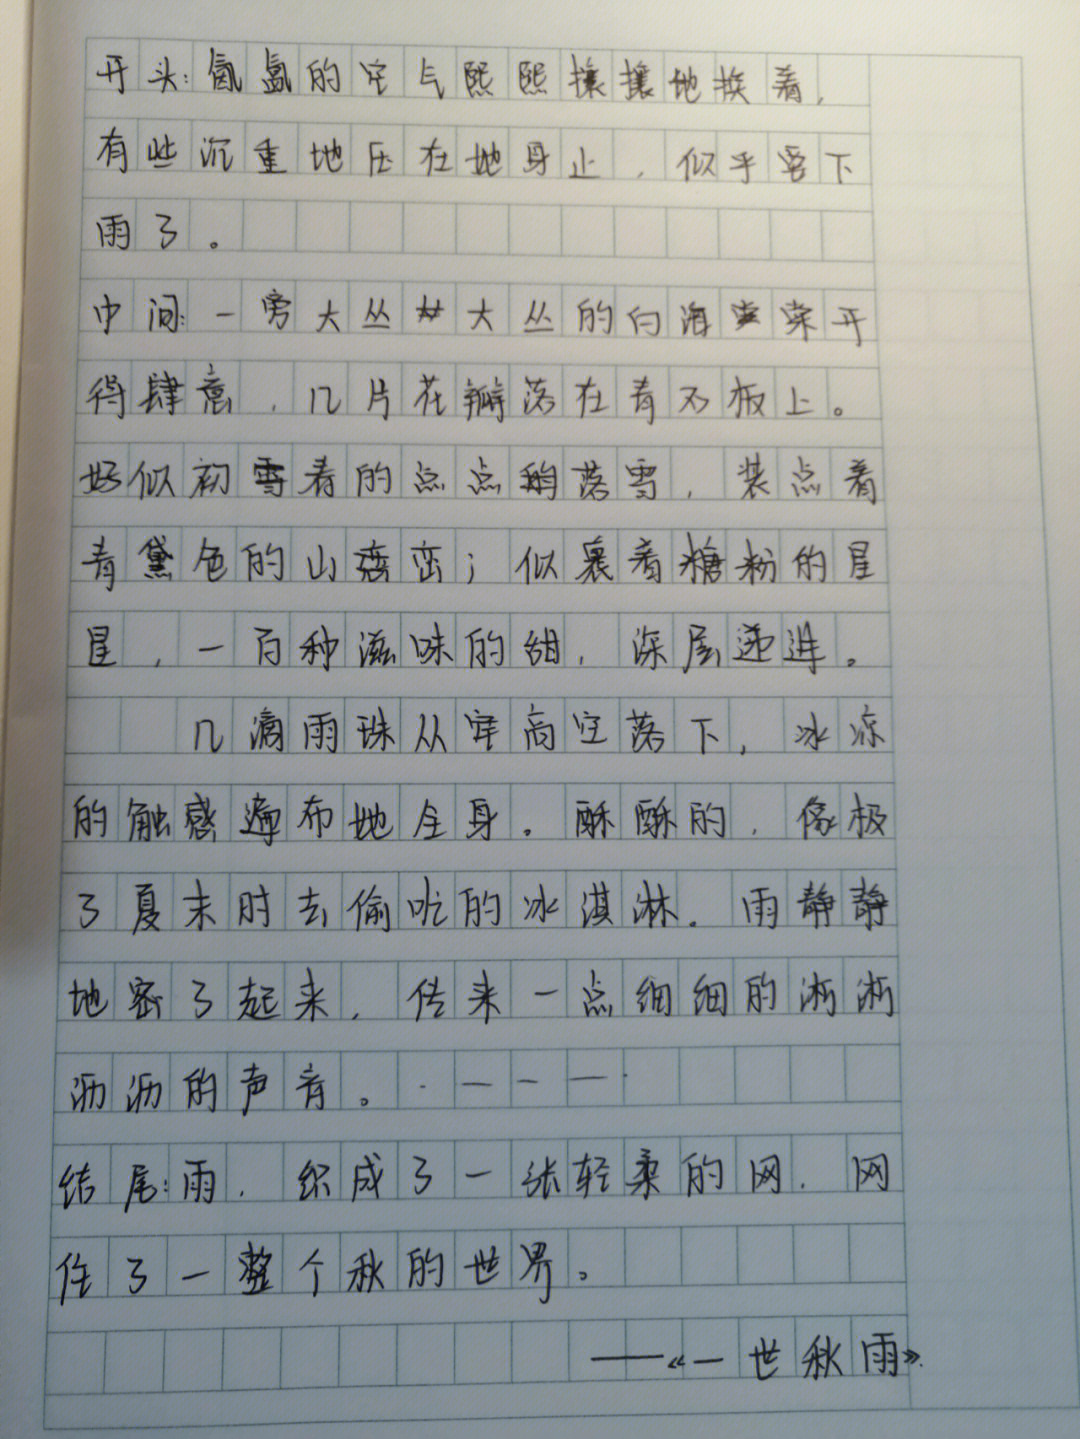 开头:氤氲的空气熙熙攘攘地挨着,
有些沉重地压在她身上,似乎要下
雨了。
中间:一旁大丛大丛的白海棠开
得肆意,几片花瓣落在青石板上。
好似初春的点点落雪,装点着
青黛色的山峦;似裹着糖粉的星
星,一百种滋味的甜,深层递进。
几滴雨珠从高空落下,冰凉
的触感遍布她全身。酥酥的,像极
了夏末时去偷吃的冰淇淋。雨静静
地密了起来,传来一点细细的淅淅
沥沥的声音。·———·
结尾:雨,织成了一张轻柔的网,网
住了一整个秋的世界。
——《一世秋雨》